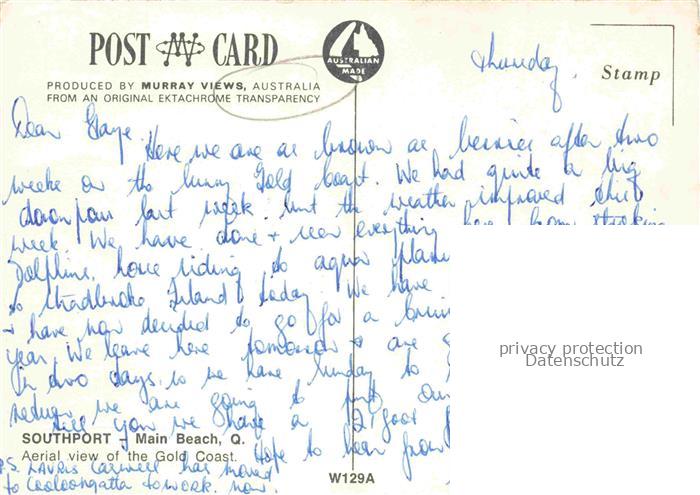 POST CARD
AUSTRALIAN MADE
PRODUCED BY MURRAY VIEWS, AUSTRALIA
FROM AN ORIGINAL EKTACHROME TRANSPARENCY
Stamp
Thursday.
Dear Gaye.
Here we are as brown as berries after two
weeks on the sunny Gold Coast. We had quite a big
downpour last week but the weather improved this
week. We have done + seen everything here from
Dolphins, horse riding to aqua
to Stradbroke Island today We have
+ have now decided to go for a
year. We leave here tomorrow + are
in two days so we have Sunday to
we are going to
tell you we have a 21 foot
Hope to hear from
SOUTHPORT – Main Beach, Q.
Aerial view of the Gold Coast.
P.S. has moved
to Cooloongatta to work. now.
W129A
privacy protection
Datenschutz